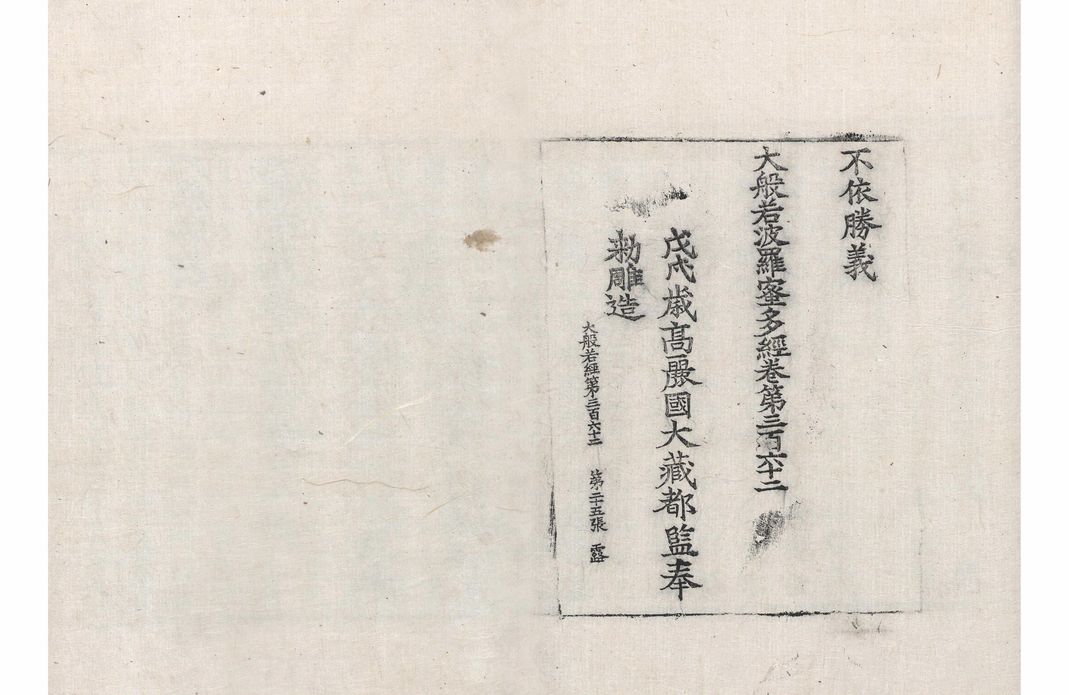 不依勝義
大般若波羅蜜多經卷第三百六十二
戊戌歳高麗國大藏都監奉
勅雕造
大般若經第三百六十二 第二十五張 露